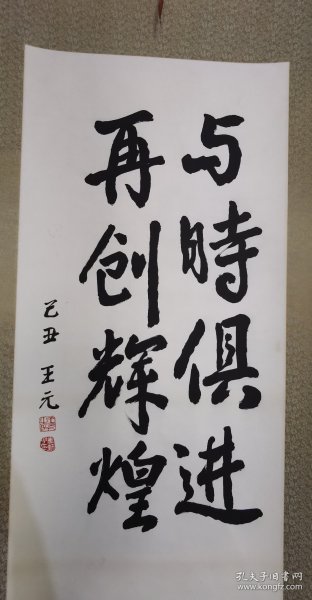 与時俱进
再创辉煌
己丑 王元
孔夫子旧书网
www.kongfz.com